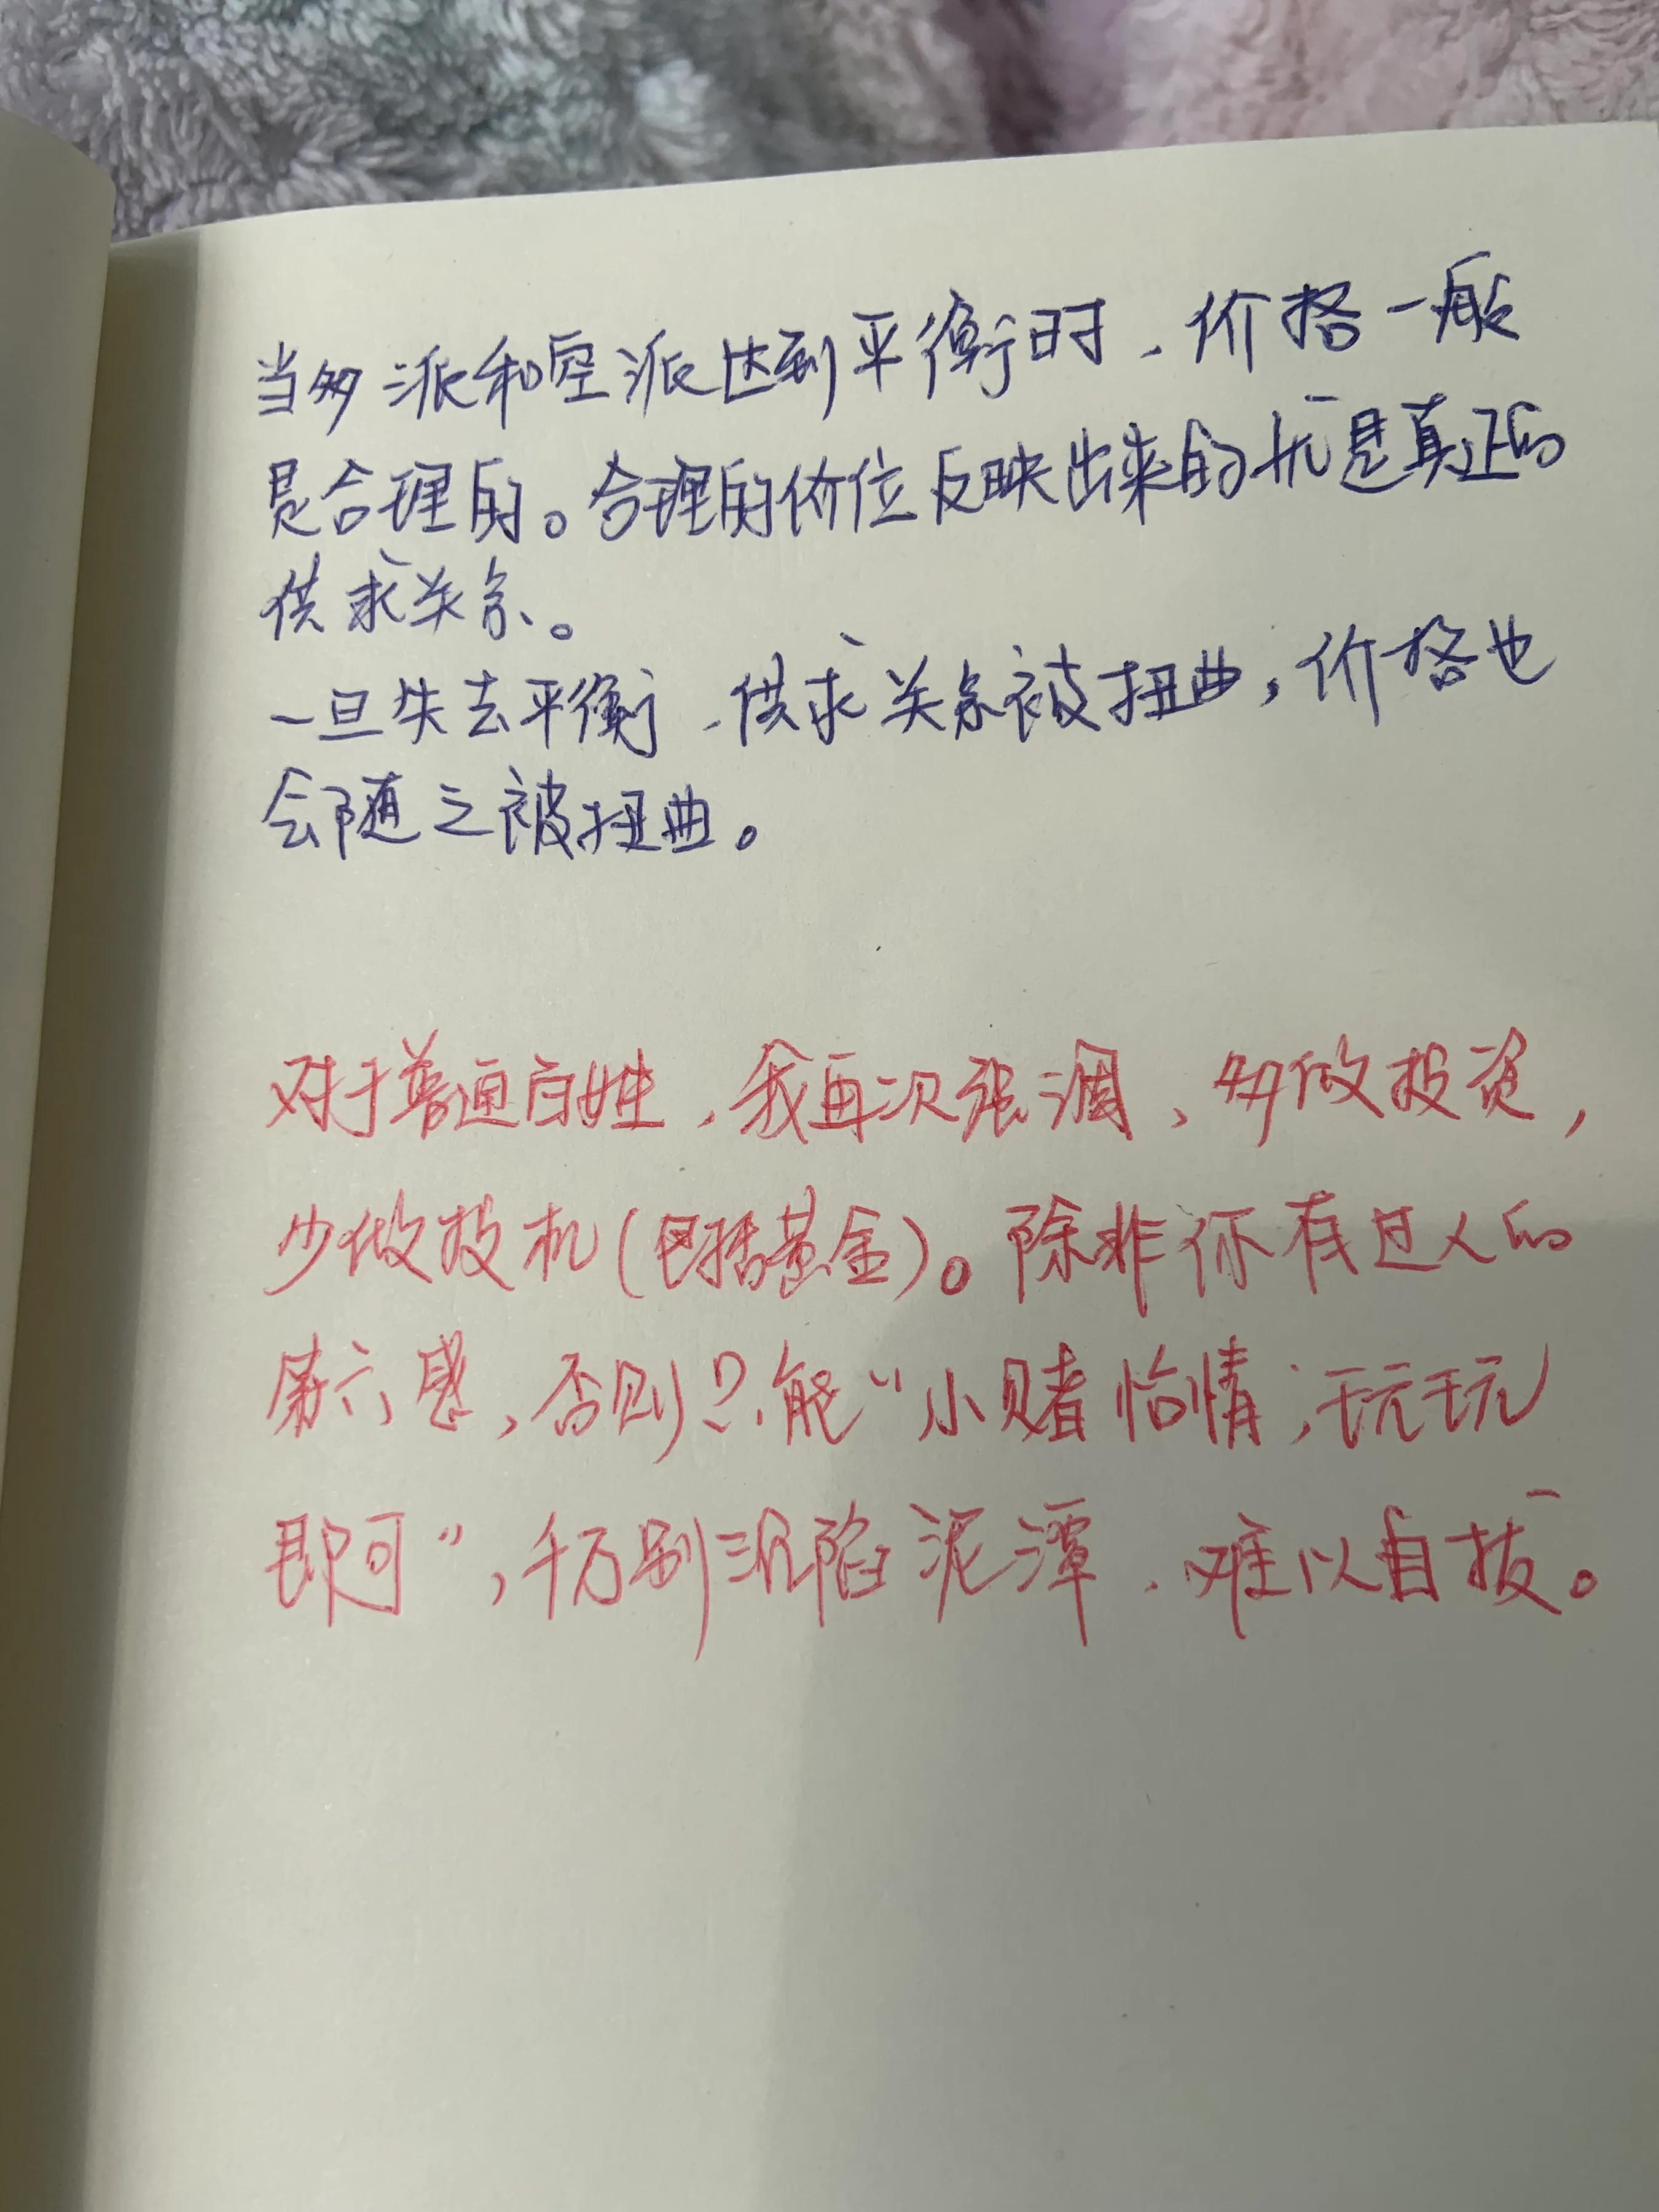 当多派和空派达到平衡时，价格一般
是合理的。合理的价位反映出来的才是真正的
供求关系。
一旦失去平衡，供求关系被扭曲，价格也
会随之被扭曲。
对于普通百姓，我再次强调，多做投资，
少做投机（包括黄金）。除非你有过人的
第六感，否则只能“小赌怡情，玩玩
即可”，千万别沉陷泥潭，难以自拔。